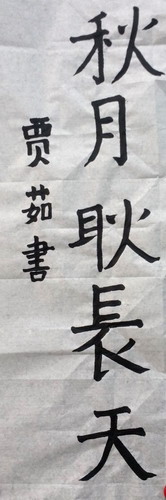 秋月耿長天
贾茹書